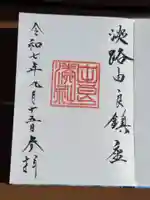 淡路由良鎮座
令和七年九月十五日参拝